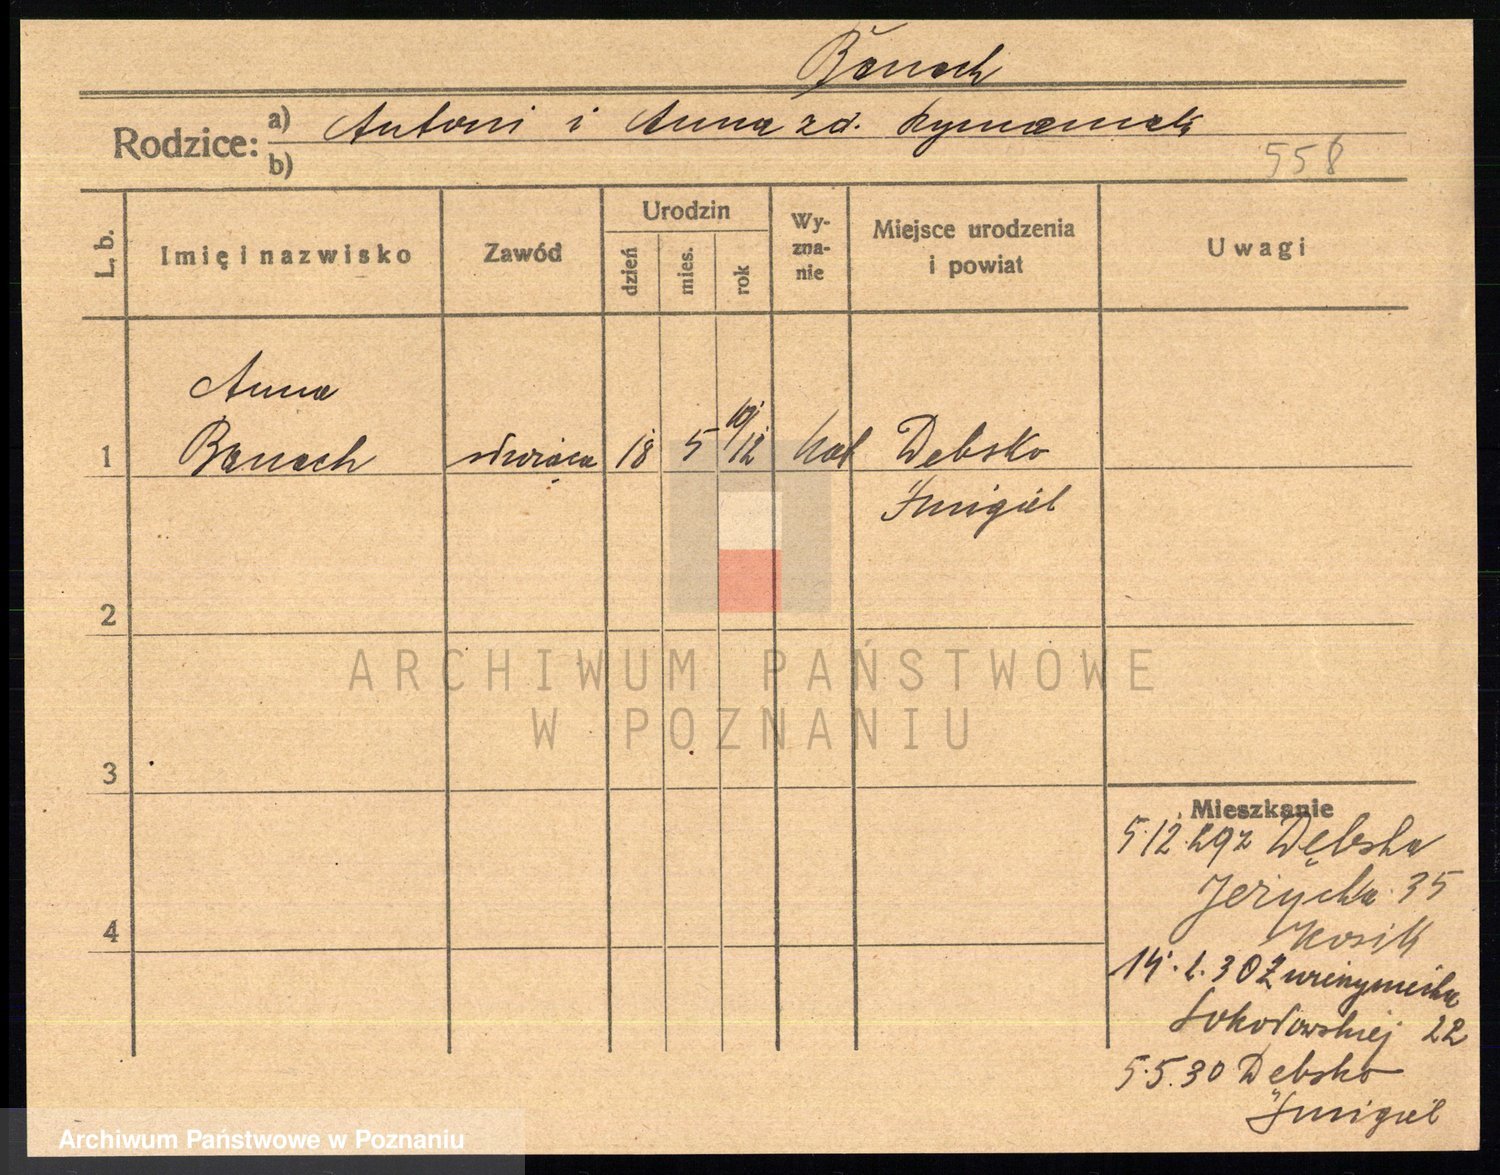 Banach
Rodzice: a) Antoni i Anna zd.
b)
558
L. b.
Imię i nazwisko
Zawód
Urodzin
dzień
mies.
rok
Wy-
zna-
nie
Miejsce urodzenia
i powiat
Uwagi
Anna
1 Banach służąca 18 5 19/12 kat Dębsko
Śmigiel
2
ARCHIWUM PAŃSTWOWE
W POZNANIU
3
Mieszkanie
5.12.29 z Dębska
Jerzycka 35
Kosik
4
14.2.30 Z
Sokołowskiej 22
5.5.30 Dębsko
Śmigiel
Archiwum Państwowe w Poznaniu